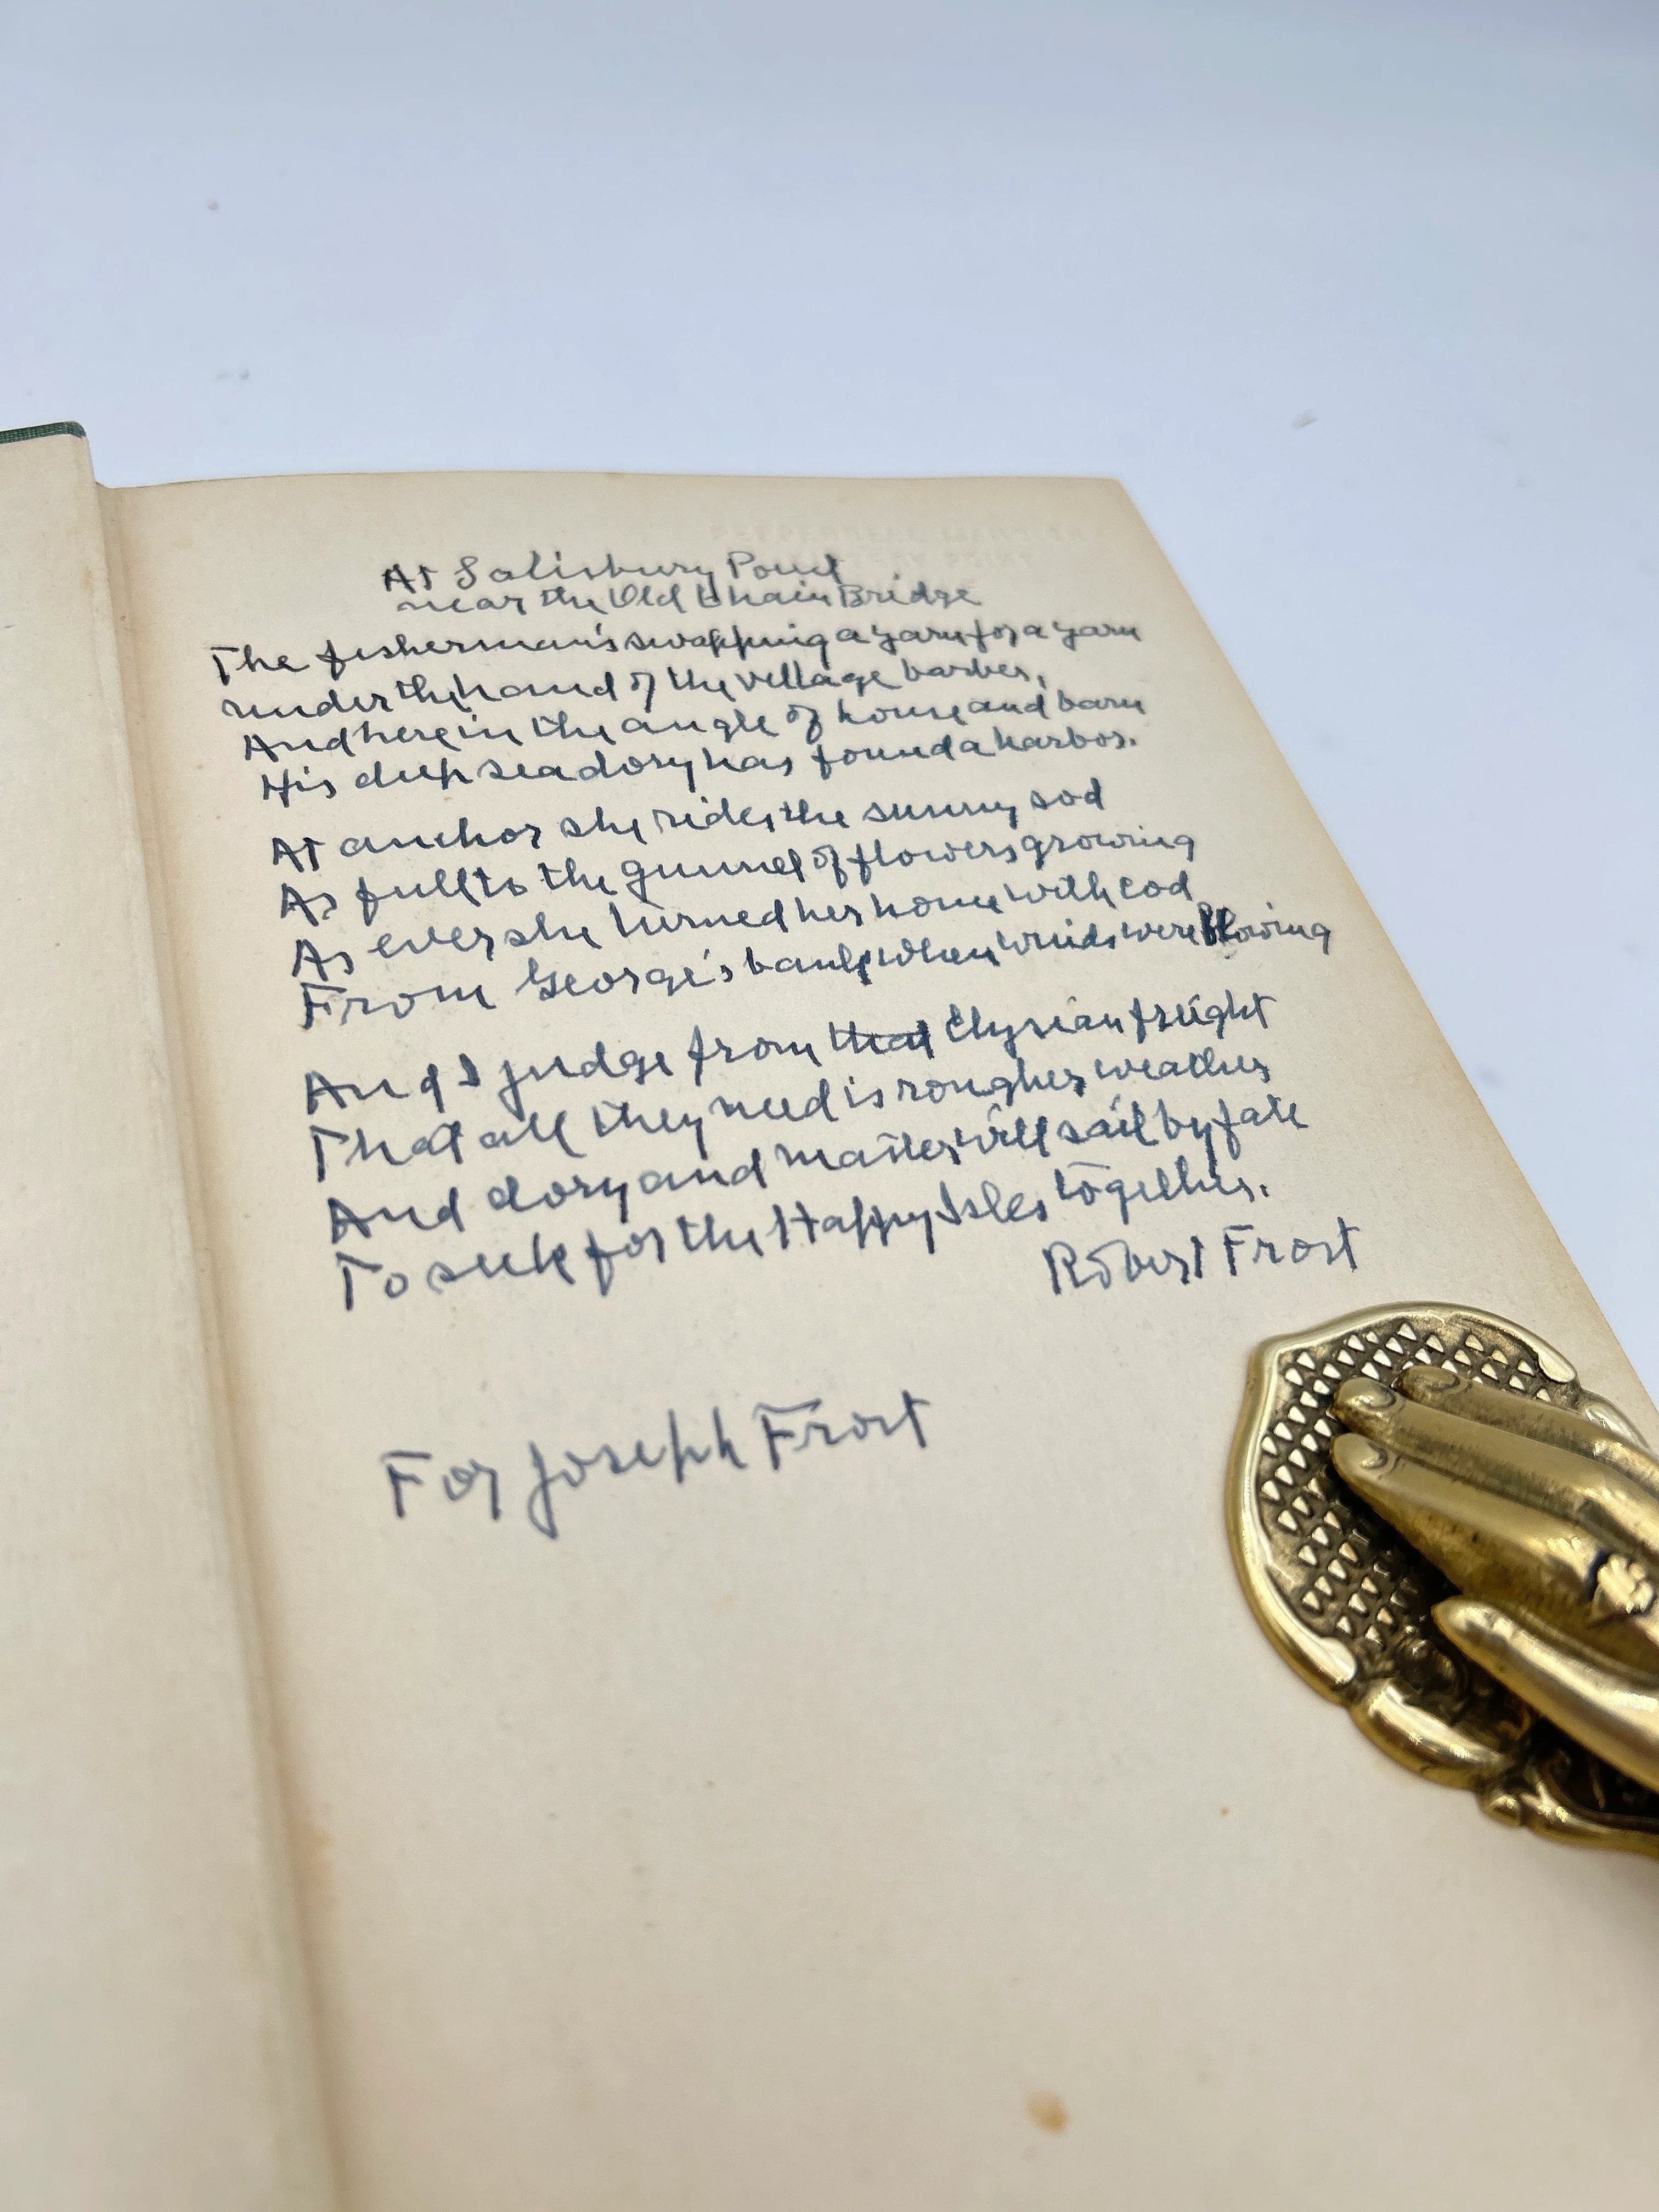 At Salisbury Point
near the Old Chain Bridge
The fisherman's swapping a yarn for a yarn
under the hand of the village barber,
And here in the angle of house and barn
His deep sea dory has found a harbor.
At anchor she rides the sunny sod
As full to the gunnel of flowers growing
As ever she turned her home with cod
From George's bank when winds were blowing
And I judge from that Elysian freight
That all they need is rougher weather
And dory and master will sail by fate
To seek for the Happy Isles together.
Robert Frost
For Joseph Frost